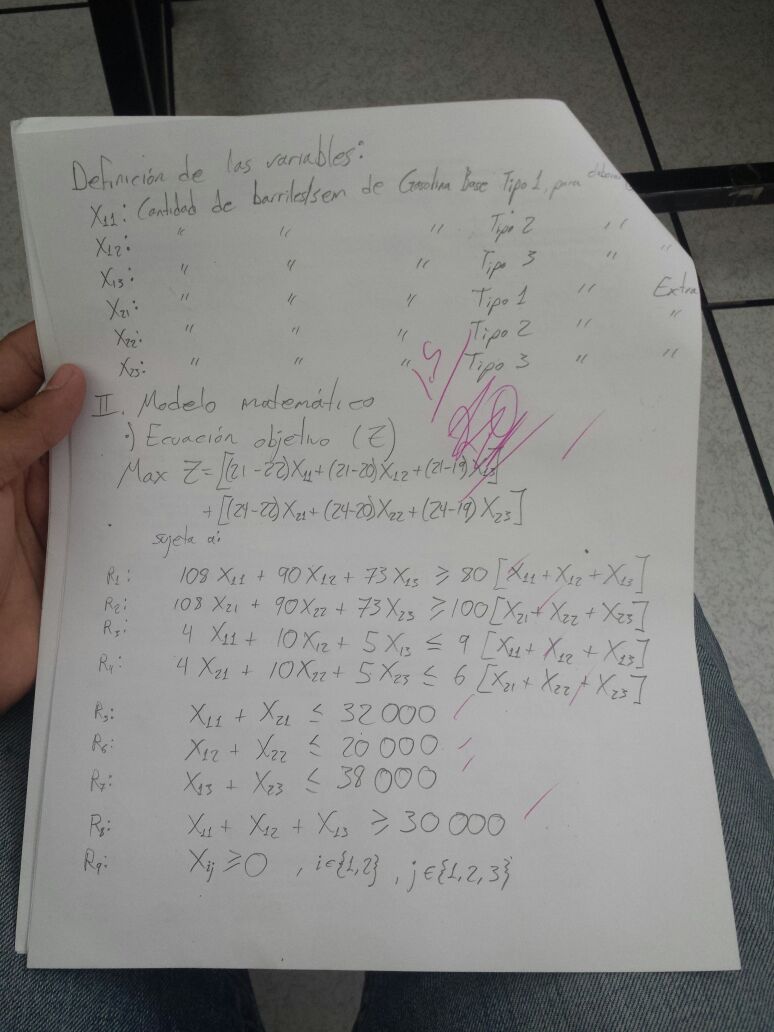 Definición de las variables:
X₁₁: Cantidad de barriles/sem de Gasolina Base Tipo 1, para
X₁₂: " " " Tipo 2 " "
X₁₃: " " " Tipo 3 " "
X₂₁: " " " Tipo 1 " Extra
X₂₂: " " " Tipo 2 " "
X₂₃: " " " Tipo 3 " "
1.5
II. Modelo matemático
·) Ecuación objetivo (Z)
Max Z = [(21-22)X₁₁ + (21-20)X₁₂ + (21-19)X₁₃]
+ [(24-22)X₂₁ + (24-20)X₂₂ + (24-19)X₂₃]
sujeta a:
R₁: 108 X₁₁ + 90 X₁₂ + 73 X₁₃ ≥ 80 [X₁₁ + X₁₂ + X₁₃]
R₂: 108 X₂₁ + 90 X₂₂ + 73 X₂₃ ≥ 100 [X₂₁ + X₂₂ + X₂₃]
R₃: 4 X₁₁ + 10 X₁₂ + 5 X₁₃ ≤ 9 [X₁₁ + X₁₂ + X₁₃]
R₄: 4 X₂₁ + 10 X₂₂ + 5 X₂₃ ≤ 6 [X₂₁ + X₂₂ + X₂₃]
R₅: X₁₁ + X₂₁ ≤ 32 000
R₆: X₁₂ + X₂₂ ≤ 20 000
R₇: X₁₃ + X₂₃ ≤ 38 000
R₈: X₁₁ + X₁₂ + X₁₃ ≥ 30 000
R₉: Xij ≥ 0 , i∈{1,2} , j∈{1,2,3}